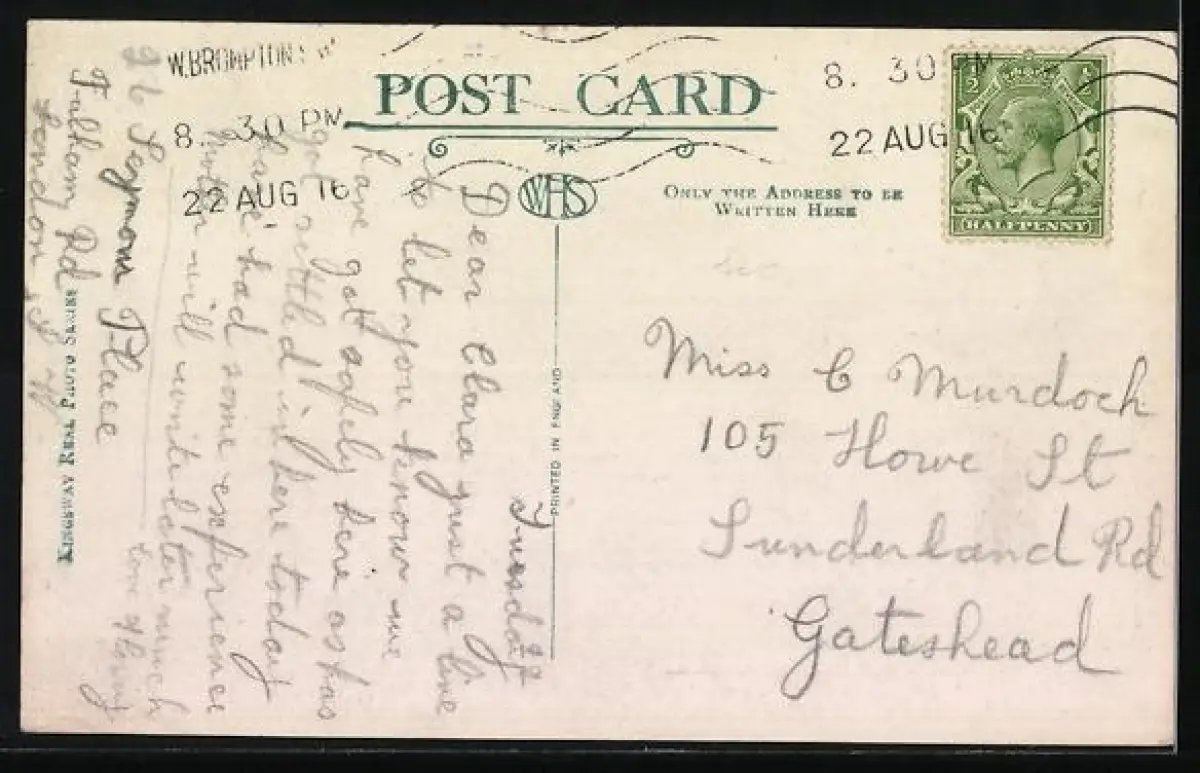 W. BROMPTON S.W
8. 30 PM
22 AUG 16
8. 30 PM
22 AUG 16
POST CARD
WHS
ONLY THE ADDRESS TO BE
WRITTEN HERE
HALFPENNY
Miss C Murdoch
105 Howe St
Sunderland Rd
Gateshead
PRINTED IN ENGLAND
KINGSWAY REAL PHOTO SERIES
Tuesday
Dear Clara just a line
to let you know we
have got safely here
got settled in here today
have had some experience
will write later much
love
26 Seymour Place
Fulham Rd
London S W